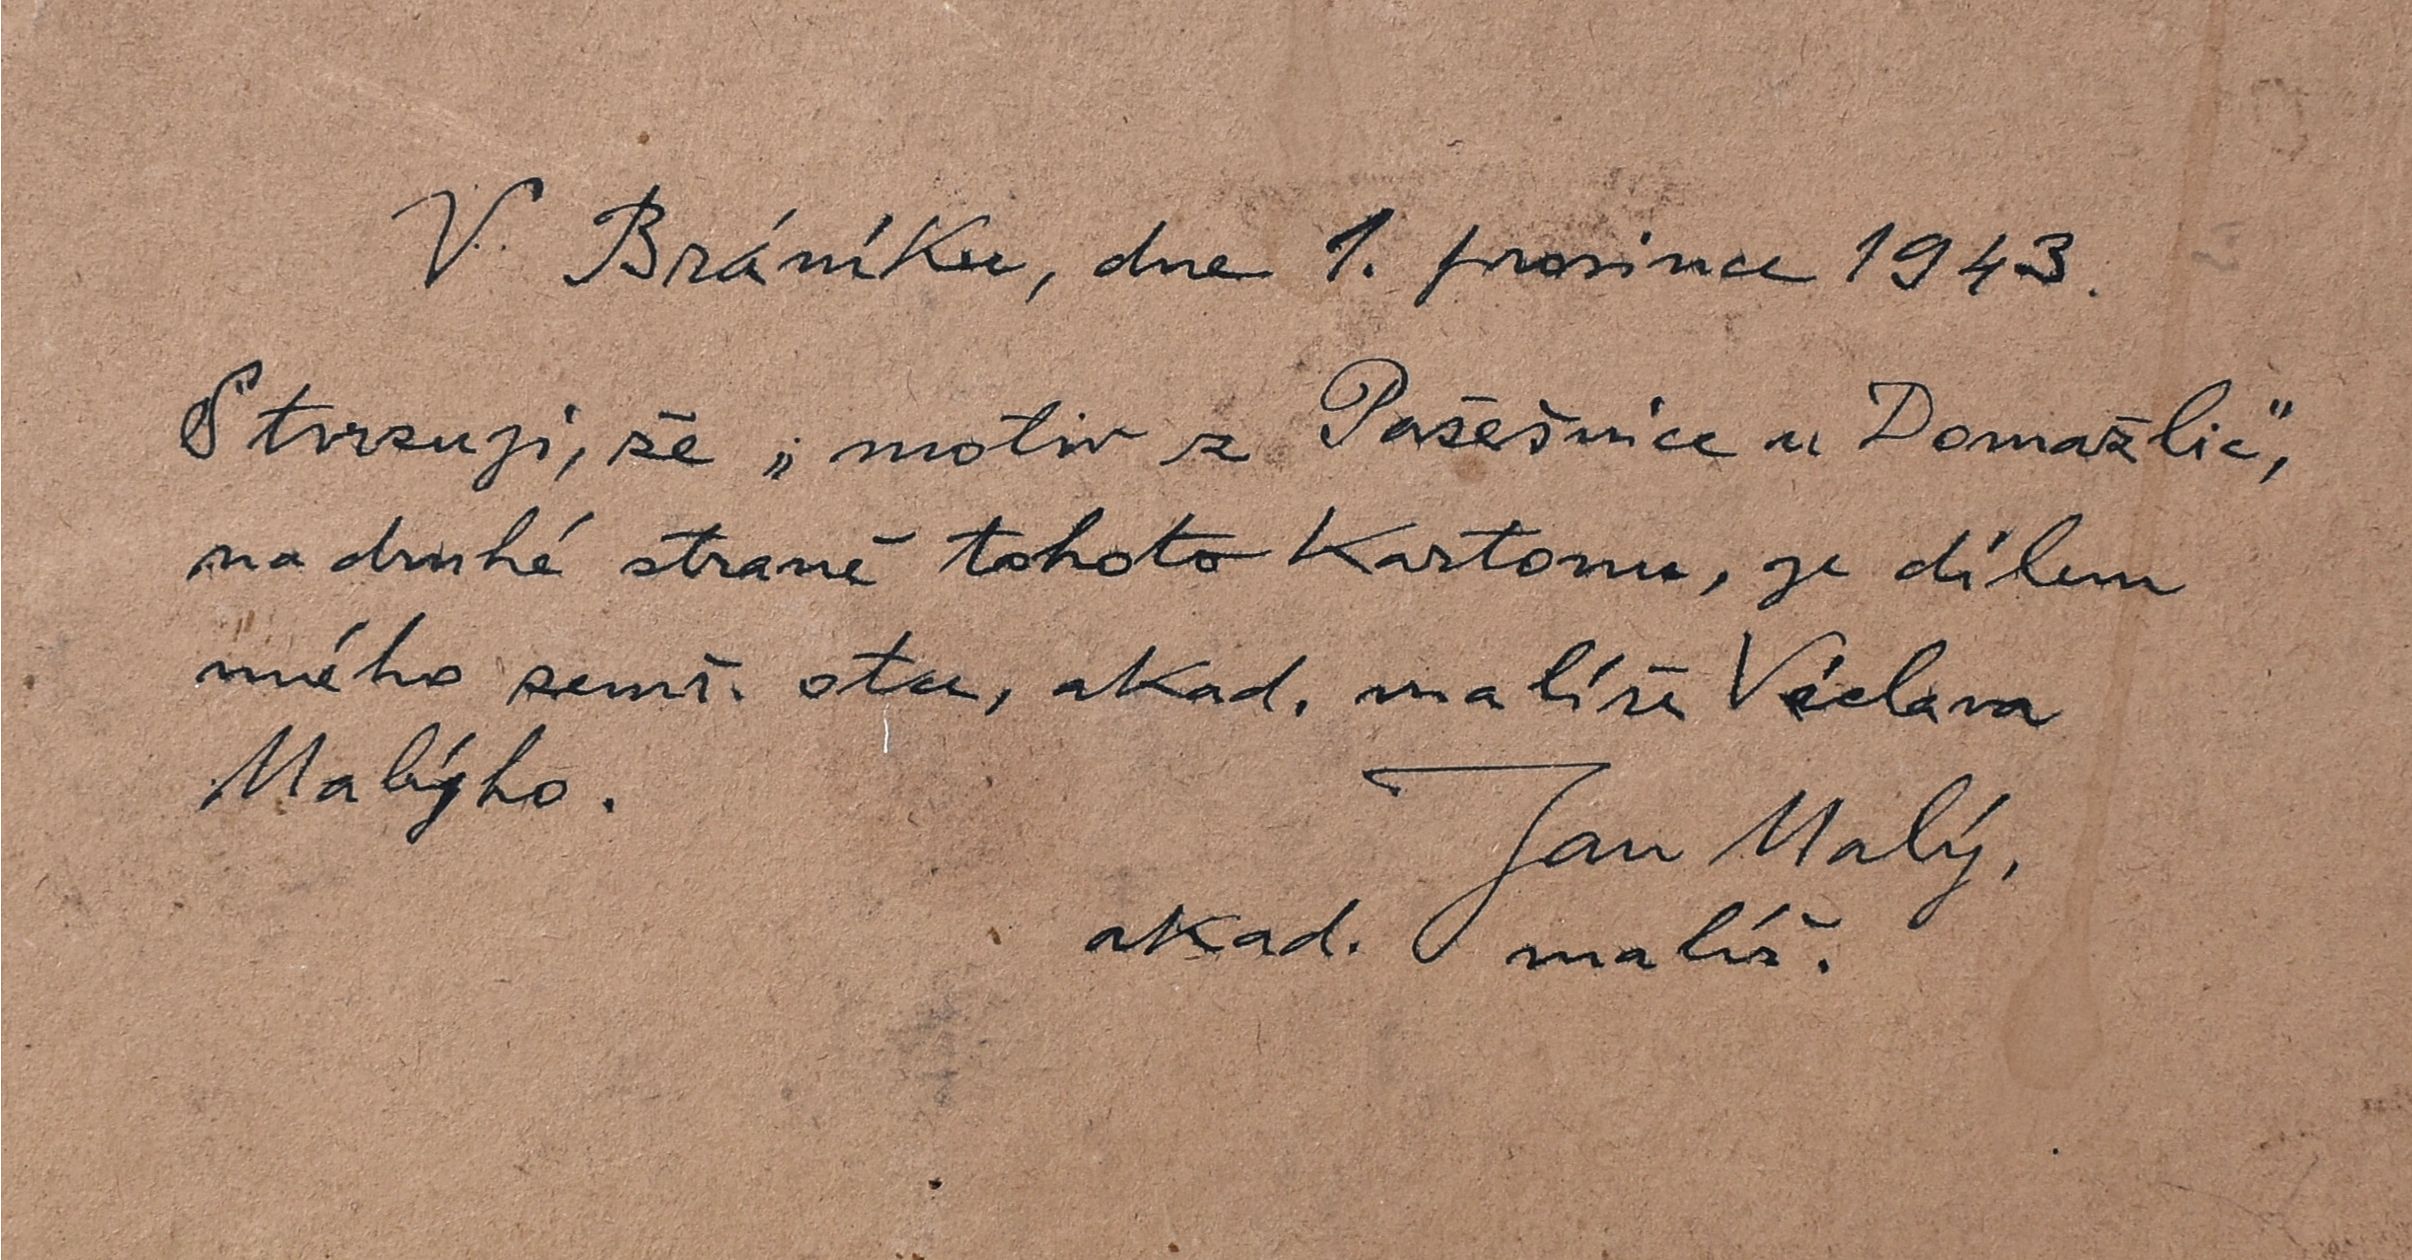 V Bráníku, dne 1. prosince 1943.
Stvrzuji, že „motiv z Pašešnice u Domažlic",
na druhé straně tohoto kartonu, je dílem
mého zemř. otce, akad. malíře Václava
Malýho.
Jan Malý,
akad. malíř.